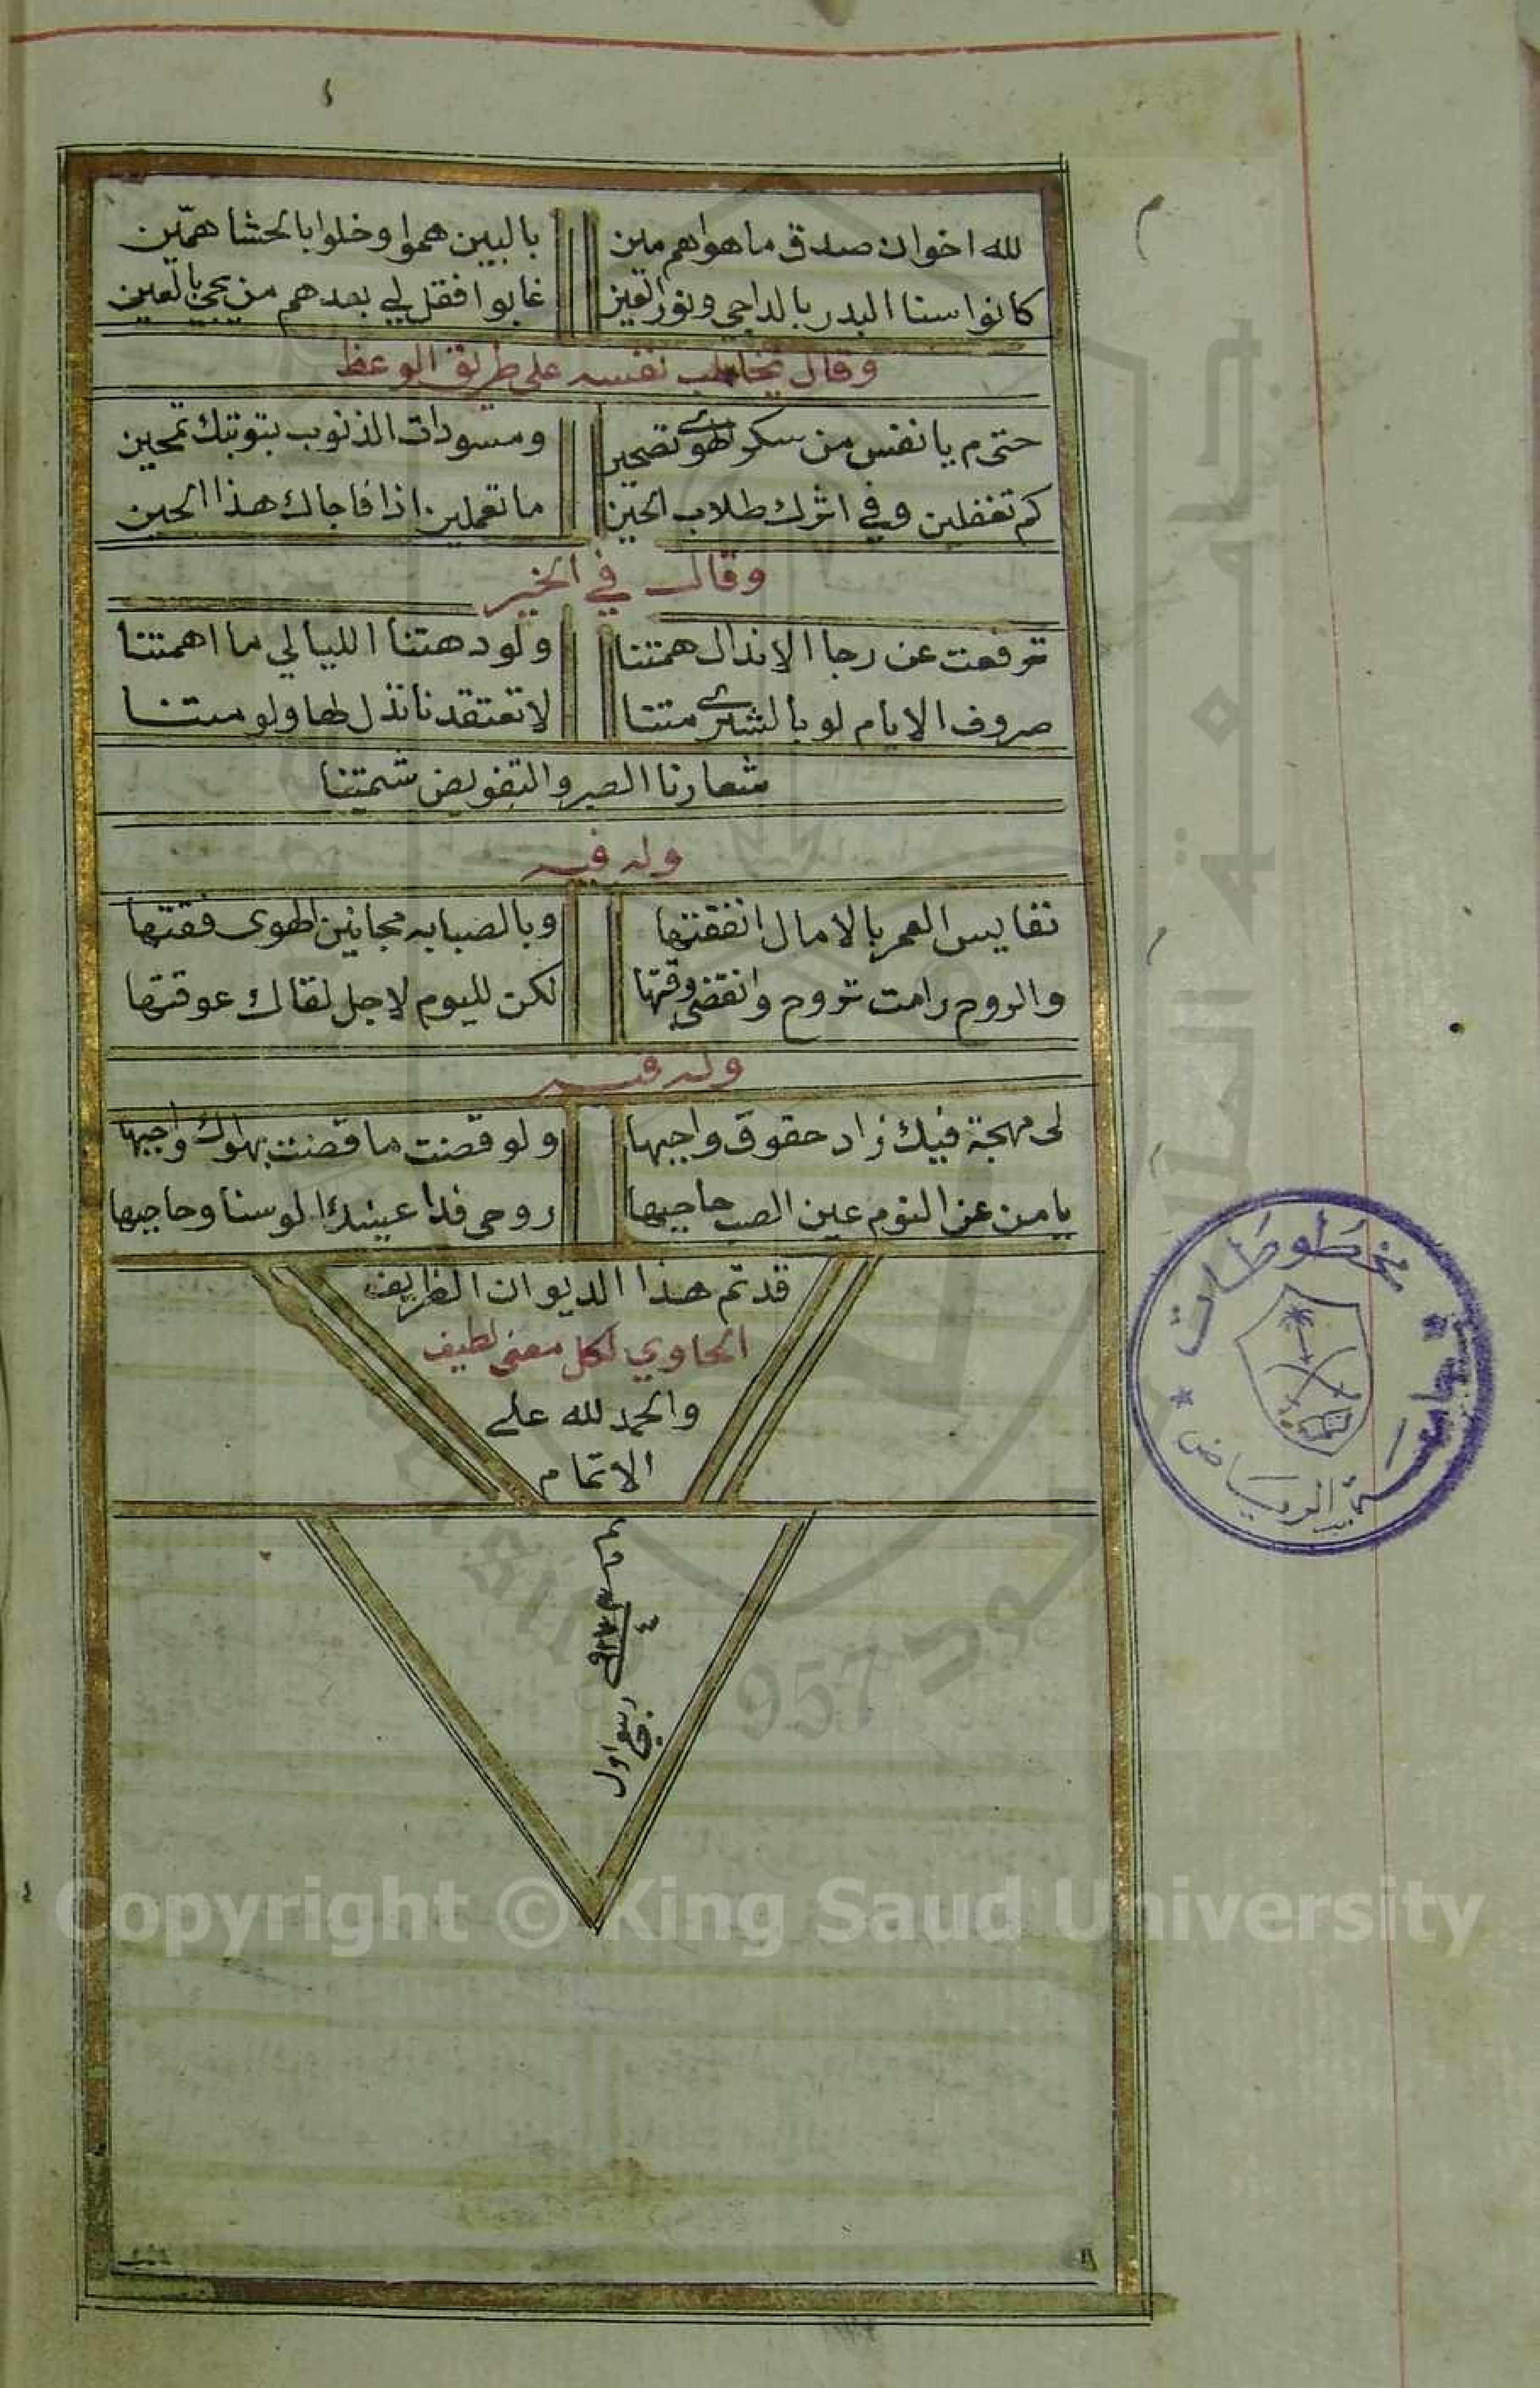 لله اخوان صدق ما هواهم مين بالبين هموا وخلوا بالحشا همّين
كانوا سنا البدر بالداجي ونور العين غابوا فقل لي بعدهم من يجي بالعين
وقال يخاطب نفسه على طريق الوعظ
حتى م يا نفس من سكر الهوى تصحين ومسودات الذنوب بتوبتك تمحين
كم تغفلين وفي اثرك طلاب الحين ما تعملين اذا فاجاك هذا الحين
وقال في الخير
ترفعت عن رجا الانذال همتنا ولو دهتنا الليالي ما اهمتنا
صروف الايام لو بالشرى متنا لا تعتقدنا نذل لها ولو متنا
شعارنا الصبر والتفويض شمتنا
وله فيه
نفايس العمر بالامال انفقتها وبالصبابه مجانين الهوى فقتها
والروح رامت تروح وانقضى وقتها لكن لليوم لاجل لقاك عوقتها
وله فيه
لى مهجة فيك زاد حقوق واجبها ولو قضت ما قضت بهواك واجبها
يا من عن النوم عين الصب حاجبها روحى فدا عينك الوسنا وحاجبها
قد تم هذا الديوان الظريف
الحاوي لكل معنى لطيف
والحمد لله على
الاتمام
تم
م
في
ربيع اول
مخطوطات
جامعة الرياض
جامعة الملك سعود
1957
Copyright © King Saud University